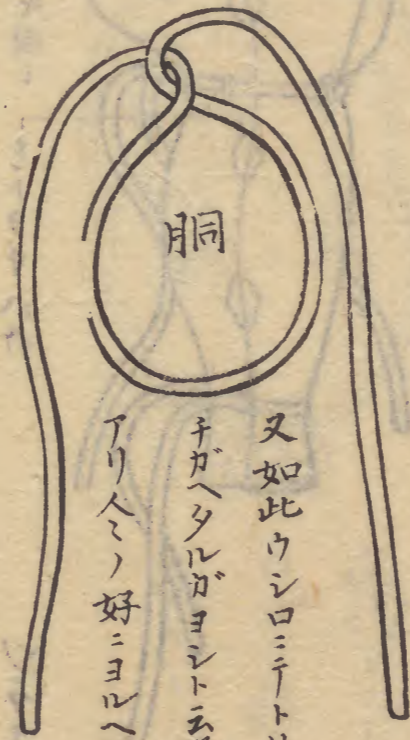 胴
又如此ウシロニテト
チガヘタルガヨシト云
アリ人々ノ好ニヨルヘ